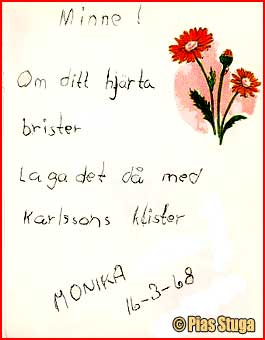 Minne!
Om ditt hjärta
brister
Laga det då med
Karlssons klister
MONIKA
16-3-68
© Pias Stuga